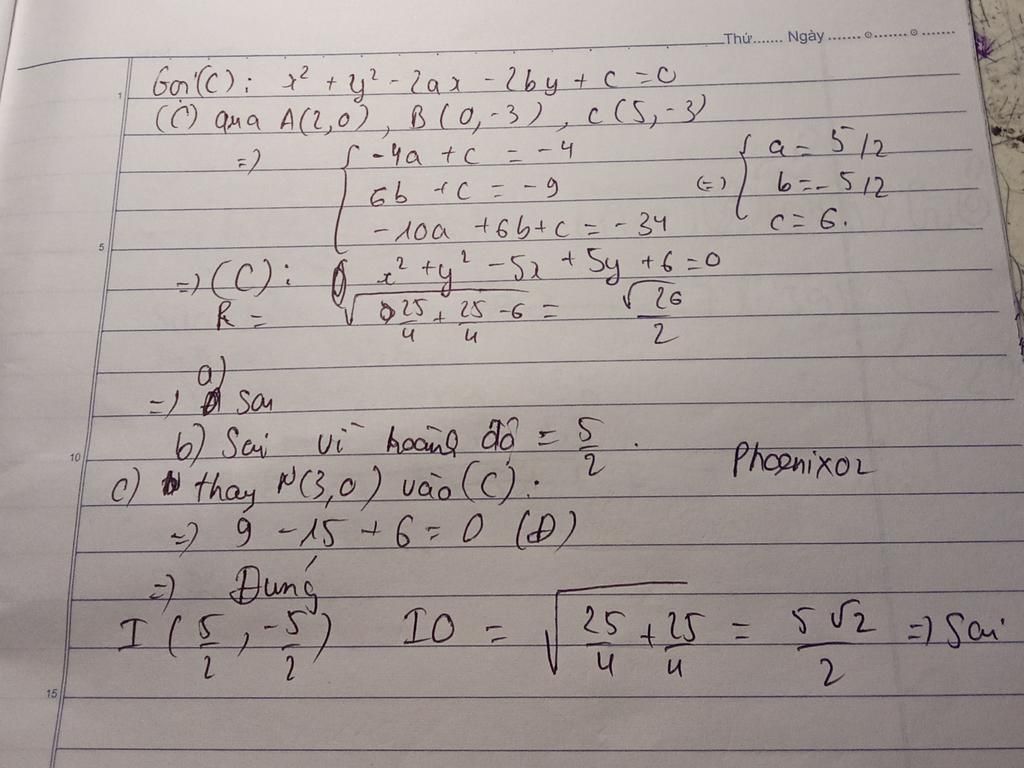 Thứ....... Ngày ........ ........ ........
1
Gọi (C): x² + y² - 2ax - 2by + c = 0
(C) qua A(2,0), B(0,-3), C(5,-3)
=> { -4a + c = -4
6b + c = -9
-10a + 6b + c = -34
(=) { a = 5/2
b = -5/2
c = 6.
5
=> (C): x² + y² - 5x + 5y + 6 = 0
R = √(25/4 + 25/4 - 6) = √26/2
a)
=> Sai
b) Sai vì hoành độ = 5/2.
10
Phoenix02
c) thay N(3,0) vào (C):
=> 9 - 15 + 6 = 0 (Đ)
=> Đúng
I(5/2, -5/2) IO = √(25/4 + 25/4) = 5√2/2 => Sai
15